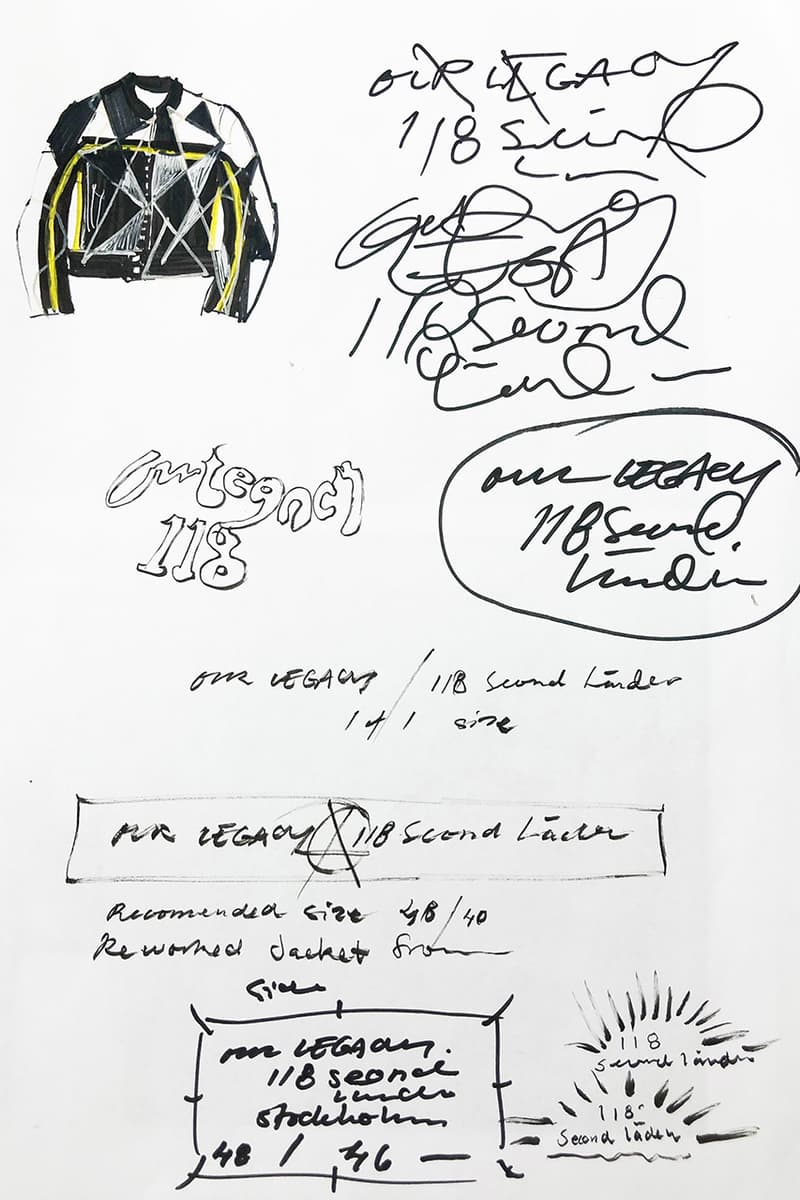 OUR LEGACY
118 Second
OUR LEGACY
118 Second
Länder
Our Legacy
118
OUR LEGACY
118 Second
Länder
OUR LEGACY / 118 Second Länder
1 of 1 size
OUR LEGACY 118 Second Läder
Recomended size 48/40
Reworked Jacket from
OUR LEGACY.
118 second
Länder
stockholm
48 / 46 —
118
second länder
118
Second läder